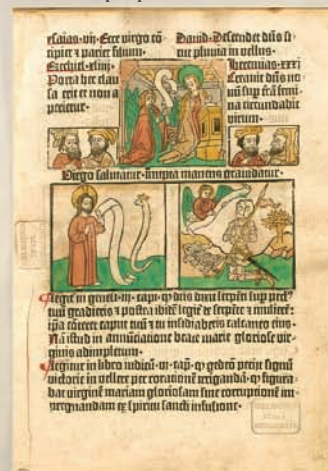 Esaias·vij·Ecce virgo cō
cipiet & pariet filium.
Ezechiel·xliiij·
Porta hec clau
sa erit et non a
perietur.
Dauid·Descendet dūs si
cut pluuia in vellus.
Hieremias·xxxi
Creauit dūs no
uū sup terrā femi
na circundabit
virum.
Virgo salutatur·innupta manens grauidatur·
Legit̄ in genesi·iij·cap·
tuū gradieris
ipa cōteret caput tuū & tu insidiaberis calcaneo eius·
Nā istud in annūciatione beate marie gloriose vir
ginis adimpletum.
Legitur in libro iudicū·vi·cap· gedeō petijt signū
victorie in vellere per rorationē irrigandū figura
bat virginē mariam gloriosam sine corruptione im
pregnandam spiritus sancti infusione·